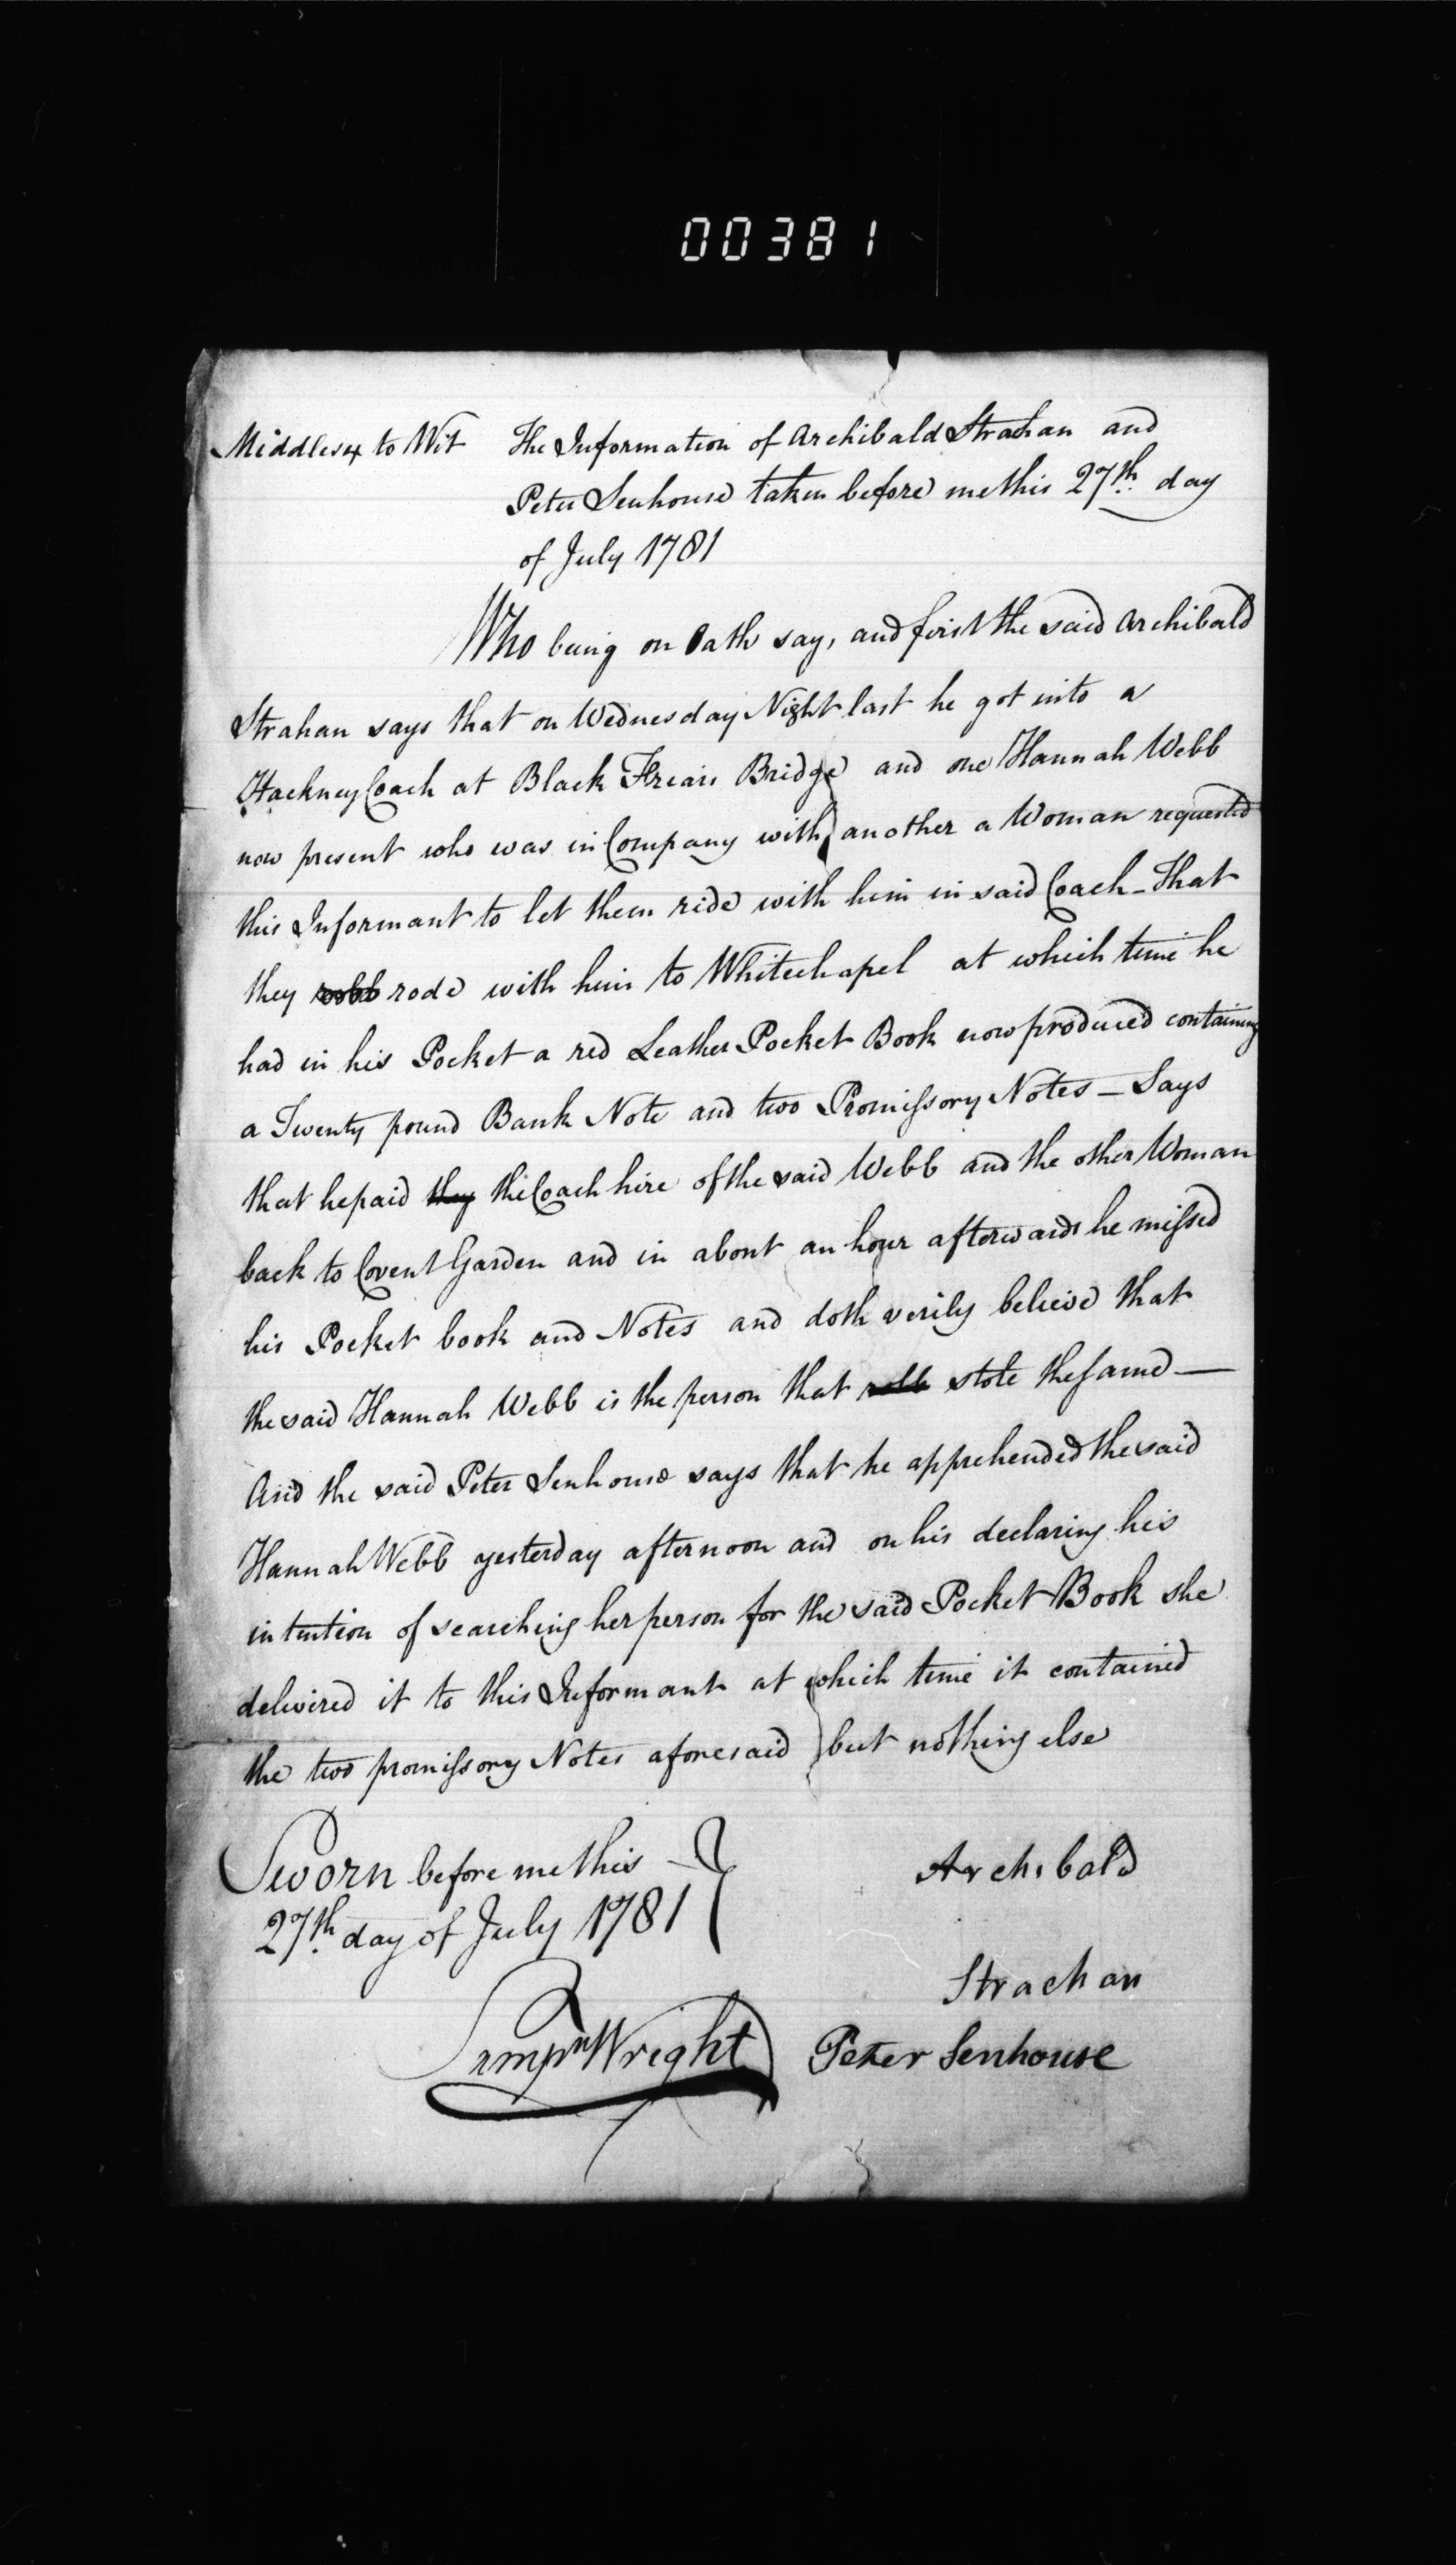 00381
Middlesex to Wit The Information of Archibald Strahan and
Peter Senhouse taken before me this 27th. day
of July 1781
Who being on Oath say, and first the said Archibald
Strahan says that on Wednesday Night last he got into a
Hackney Coach at Black Friars Bridge and one Hannah Webb
now present who was in Company with another a Woman requested
this Informant to let them ride with him in said Coach - That
they robb rode with him to Whitechapel at which time he
had in his Pocket a red Leather Pocket Book now produced containing
a Twenty pound Bank Note and two Promissory Notes - Says
that he paid they the Coach hire of the said Webb and the other Woman
back to Covent Garden and in about an hour afterwards he missed
his Pocket book and Notes and doth verily believe that
the said Hannah Webb is the person that robb stole the same —
And the said Peter Senhouse says that he apprehended the said
Hannah Webb yesterday afternoon and on his declaring his
intention of searching her person for the said Pocket Book she
delivered it to this Informant at which time it contained
the two promissory Notes aforesaid but nothing else
Sworn before me this
27th. day of July 1781
Archibald
Strachan
Sampn Wright
Peter Senhouse